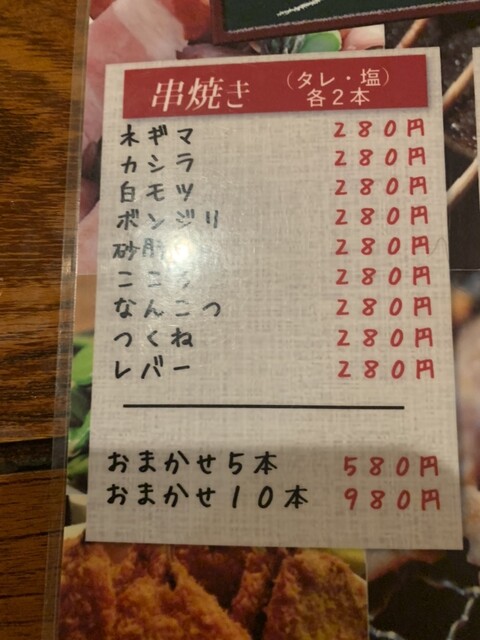 串焼き
（タレ・塩）
各２本
ネギマ 280円
カシラ 280円
白モツ 280円
ボンジリ 280円
砂肝 280円
こころ 280円
なんこつ 280円
つくね 280円
レバー 280円
おまかせ5本 580円
おまかせ10本 980円